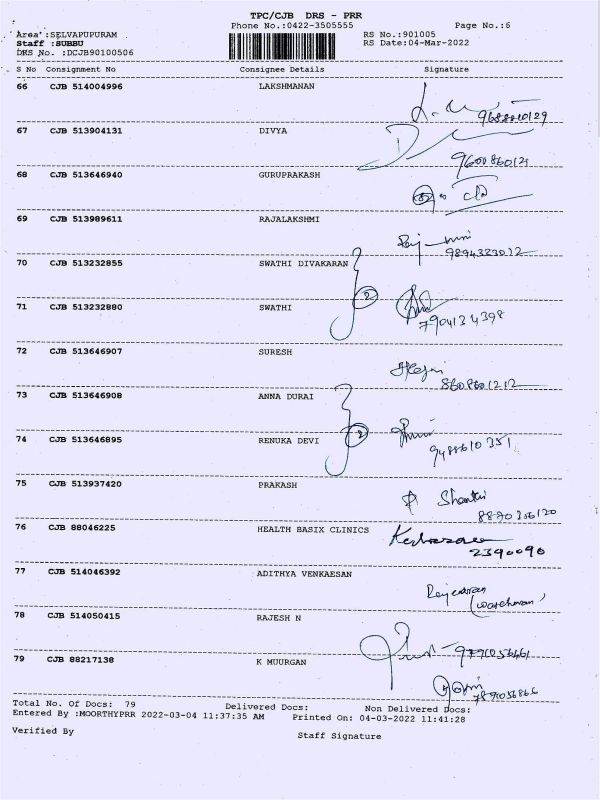 TPC/CJB DRS - PRR
Phone No.:0422-3505555 Page No.:6
Area :SELVAPUPURAM RS No.:901005
Staff :SUBBU RS Date:04-Mar-2022
DRS No. :DCJB90100506
S No Consignment No Consignee Details Signature
66 CJB 514004996 LAKSHMANAN
67 CJB 513904131 DIVYA
9600860121
68 CJB 513646940 GURUPRAKASH
69 CJB 513989611 RAJALAKSHMI
9894323012
70 CJB 513232855 SWATHI DIVAKARAN
2
71 CJB 513232880 SWATHI
7904134398
72 CJB 513646907 SURESH
8608601212
73 CJB 513646908 ANNA DURAI
2
74 CJB 513646895 RENUKA DEVI
9488610351
75 CJB 513937420 PRAKASH
Shanthi
8870356120
76 CJB 88046225 HEALTH BASIX CLINICS
2390090
77 CJB 514046392 ADITHYA VENKAESAN
78 CJB 514050415 RAJESH N
79 CJB 88217138 K MUURGAN
Total No. Of Docs: 79 Delivered Docs: Non Delivered Docs:
Entered By :MOORTHYPRR 2022-03-04 11:37:35 AM Printed On: 04-03-2022 11:41:28
Verified By Staff Signature